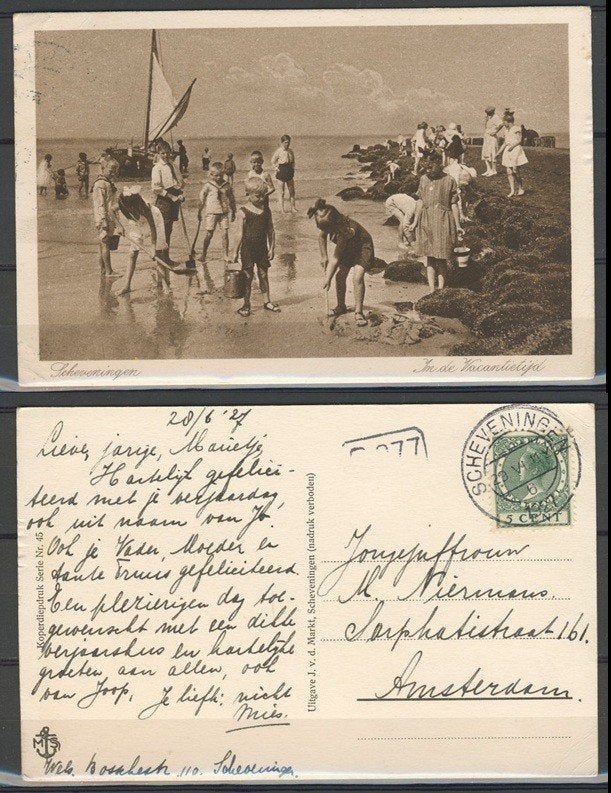 Scheveningen
In de Vacantietijd
28/6 '27
Lieve, jarige, Marietje
Hartelijk gefelici-
teerd met je verjaardag,
ook uit naam van Jo.
Ook je Vader, Moeder en
tante Truus gefeliciteerd
Een plezierigen dag toe-
gewenscht met een dikke
verjaarskus en hartelijke
groeten aan allen, ook
van Joop. Je liefh: nicht
Mies.
Wets. Bosschestr. 110. Scheveningen
Koperdiepdruk Serie Nr. 45
Uitgave J. v. d. Markt, Scheveningen (nadruk verboden)
MS
SCHEVENINGEN
VI
1927
5 CENT
Jongejuffrouw
M. Niermans.
Sarphatistraat 161.
Amsterdam.